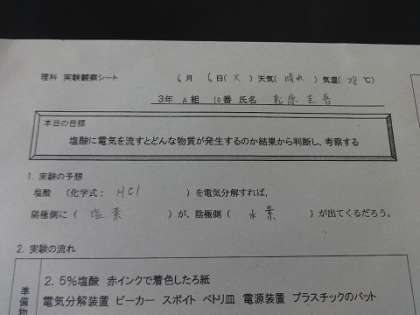 理科 実験観察シート 6月 6日(火)天気(晴れ)気温(28℃)
3年 A組 10番 氏名
本日の目標
塩酸に電気を流すとどんな物質が発生するのか結果から判断し、考察する
1. 実験の予想
塩酸 (化学式: HCl )を電気分解すれば,
陽極側に( 塩素 )が、陰極側( 水素 )が出てくるだろう。
2. 実験の流れ
準備物
2.5%塩酸 赤インクで着色したろ紙
電気分解装置 ビーカー スポイト ペトリ皿 電源装置 プラスチックのバット